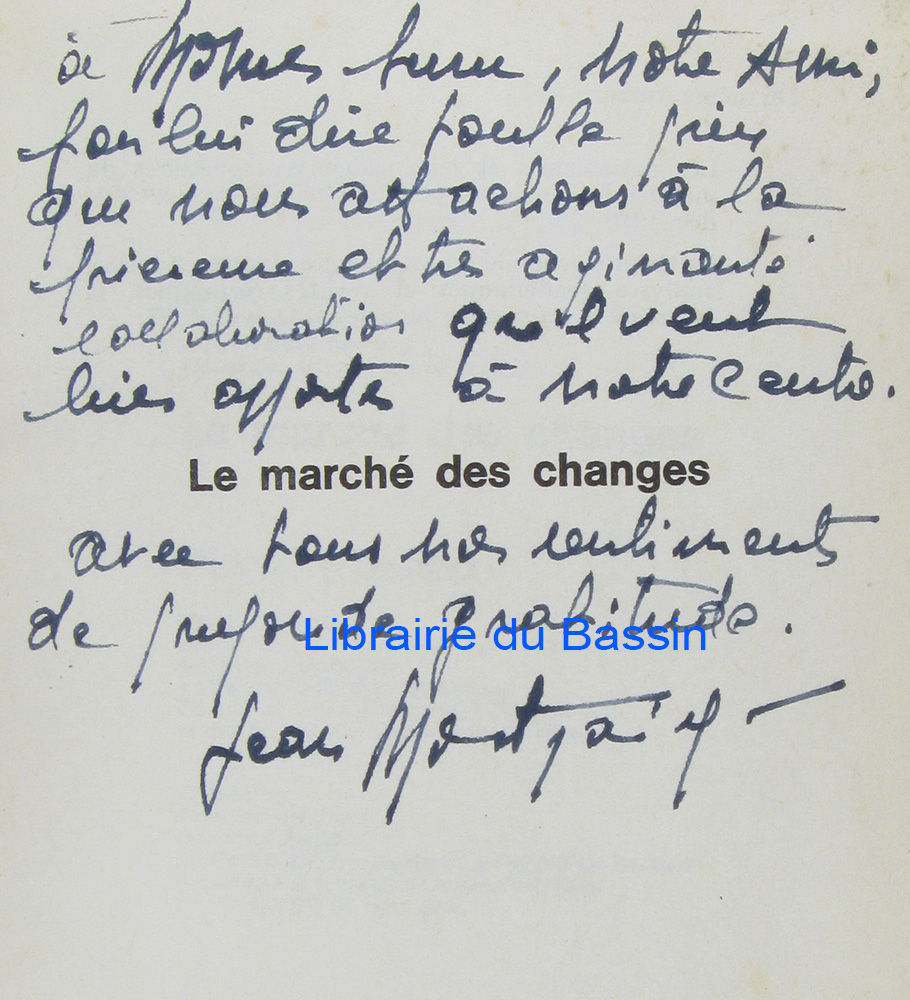 à notre Ami,
pour lui dire tout le prix
que nous attachons à la
précieuse et très
collaboration qu'il veut
bien apporter à notre Centre.
Le marché des changes
avec tous nos sentiments
de profonde gratitude.
Librairie du Bassin
Jean